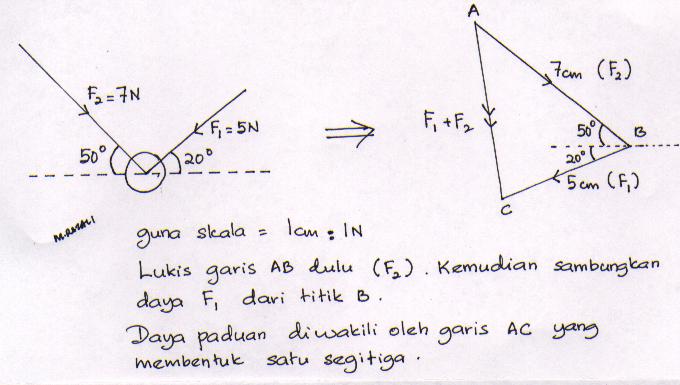 A
7cm (F₂)
F₂=7N
F₁=5N
F₁+F₂
50°
B
50°
20°
20°
5cm (F₁)
C
M.RAZALI
guna skala = 1cm : 1N
Lukis garis AB dulu (F₂). Kemudian sambungkan
daya F₁ dari titik B.
Daya paduan diwakili oleh garis AC yang
membentuk satu segitiga.